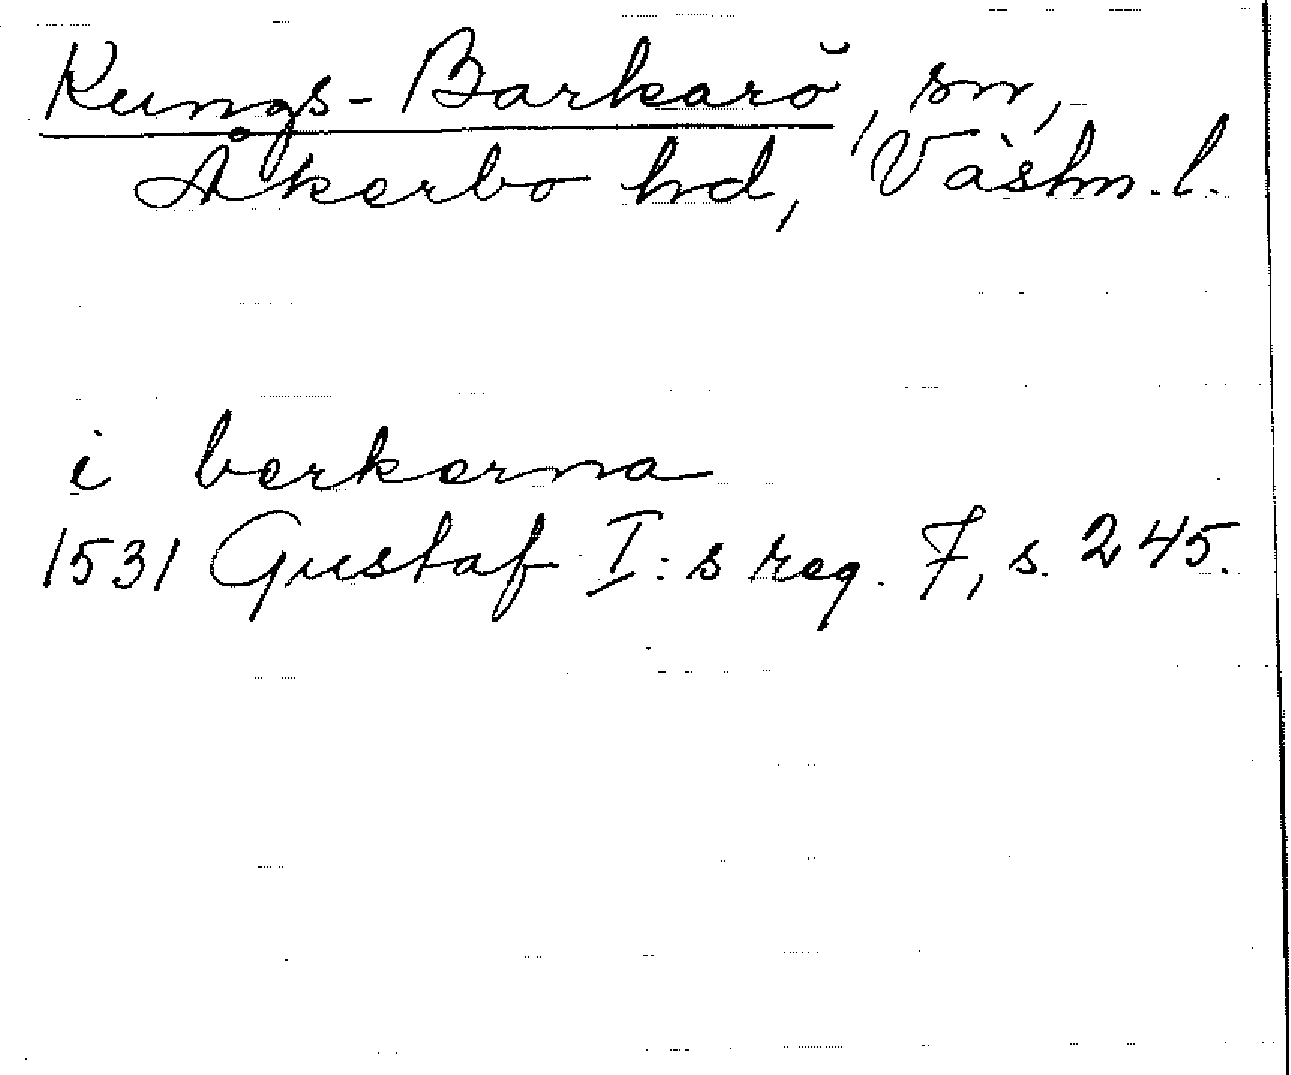 Kungs-Barkarö, sn,
Åkerbo hd, Västm. l.
i berkerna
1531 Gustaf I:s reg. 7, s. 245.